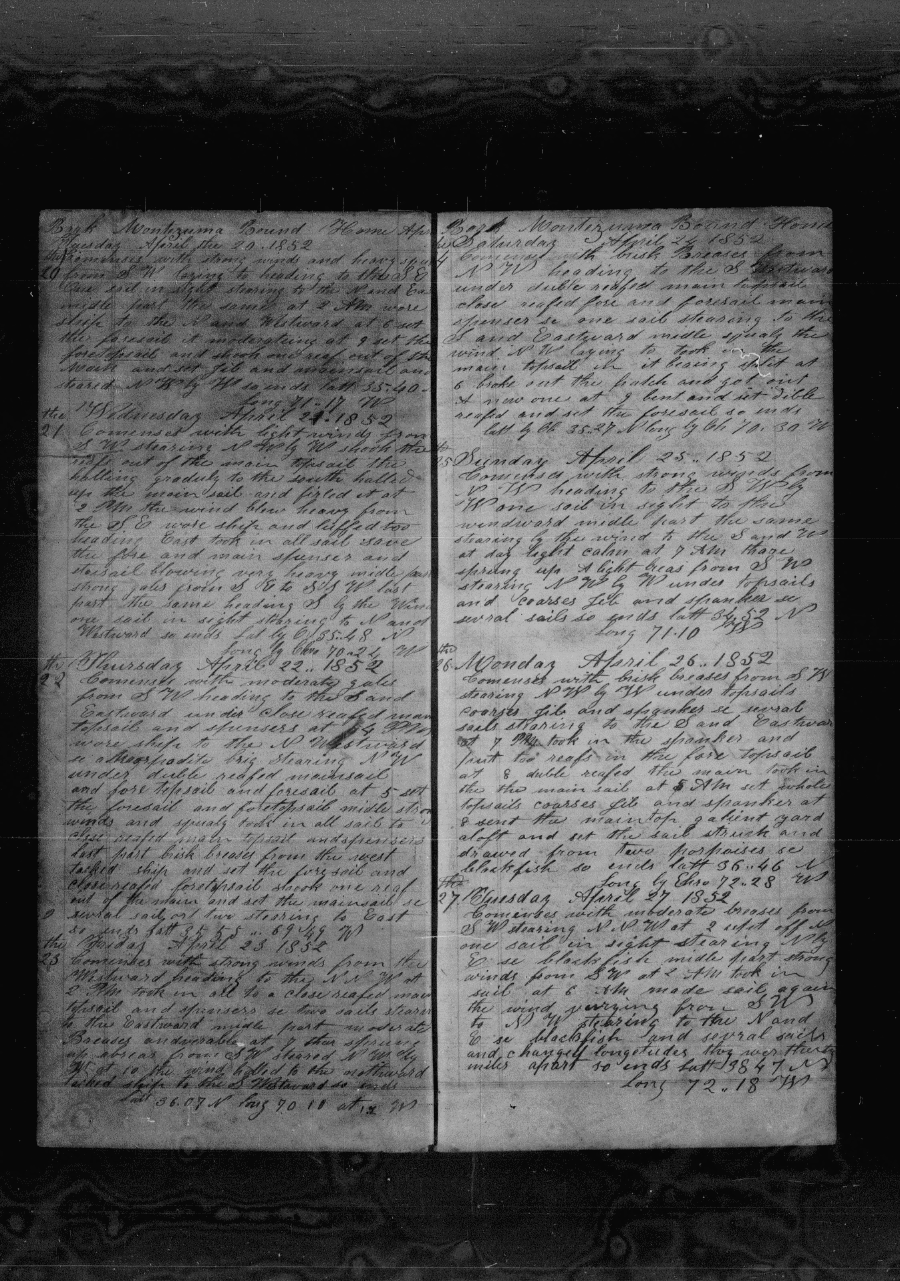 Bark Montezuma Bound Home Apr
Tuesday April the 20..1852
the Comenses with strong winds and heavy squa
20 from S W laying to heading to the S E
One sail in sight stearing to the N and Ea
midle part the same at 2 AM wore
ship to the N and Westward at 6 set
the foresail it moderating at 9 set the
foretopsail and shook one reaf out of the
Main and set jib and mainsail and
steared N W by W so ends latt 35-40-
Long 71-17 W
the Wednesday April 21-1852
21 Comenses with light winds from
S W stearing N W by W shook the
reafs out of the main topsail the
halling graduly to the south halled
up the main sail and firled it at
2 PM the wind blew heavy from
the S E wore ship and luffed too
heading East took in all sail save
the fore and main spenser and
staisail blowing very heavy midle par
strong gales from S E to S S W last
part the same heading S by the Wind
one sail in sight stearing to N and
Westward so ends Lat by O 35-48 N
Long by Chro 70-24 W
the Thursday April 22..1852
22 Comenses with moderate gales
from S W heading to the S and
Eastward under close reafed main
topsail and spensers at 4 PM
wore ship to the N Westward
se a hermpadite brig stearing N W
under duble reafed mainsail
and fore topsail and foresail at 5 set
the foresail and foretopsail midle stron
winds and squaly took in all sail to
close reafed main topsail and spensers
last part brisk breases from the west
tacked ship and set the foresail and
close reafed foretopsail shook one reaf
out of the main and set the mainsail se
sevral sail or two stearing to East
so ends latt 35 55 .. 69 49 W
the Friday April 23 1852
23 Comenses with strong winds from the
Westward heading to the N N W at
2 PM took in all to a close reafed main
topsail and spensers se two sails stearin
to the Eastward midle part moderate
Breases at 7 then sprung
up abreas from S W steared N W by
W at 10 the wind halled to the northward
tacked ship to the S Westward so ends
latt 36.07 N long 70 10 at 12 W
Bark Montezuma Bound Home
Saturday April 24 1852
Comenses with brisk Breases from
N W heading to the S Westward
under duble reafed main topsail
close reafed fore and foresail main
spenser se one sail stearing to the
S and Eastward midle squaly the
wind N W laying to took in the
main topsail in it being split at
6 broke out the hatch and got out
A new one at 9 bent and set dible
reafed and set the foresail so ends
latt by Ob 35-27 N long by Ch 70..30 W
the Sunday April 25..1852
25 Comenses with strong winds from
N W heading to the S W by
W one sail in sight to the
windward midle part the same
stearing by the wind to the S and W
at day light calm at 7 AM thare
sprung up A light breas from S W
stearing N W by W under topsails
and coarses jib and spanker se
sevral sails so ends latt 34-52 N
Long 71-10 W
the Monday April 26..1852
26 Comenses with brisk breases from S W
stearing N W by W under topsails
coarses jib and spanker se sevral
sails stearing to the S and Eastwar
at 7 PM took in the spanker and
put too reafs in the fore topsail
at 8 duble reafed the main took in
the the main sail at 5 AM set whole
topsails coarses jib and spanker at
8 sent the maintop galient yard
aloft and set the sail struck and
drawed from two porpoises se
blackfish so ends latt 36..46 N
Long by Chro 72-28 W
the Tuesday April 27 1852
27 Comenses with moderate breases from
S W stearing N N W at 2 kept off N
one sail in sight stearing N by
E se blackfish midle part strong
winds from S W at 2 AM took in
sail at 6 AM made sail again
the wind varging from S W
to N W stearing to the N and
E se blackfish and several sails
and changed longetudes they wer thirty
miles apart so ends Latt 38 47 N
Long 72..18 W